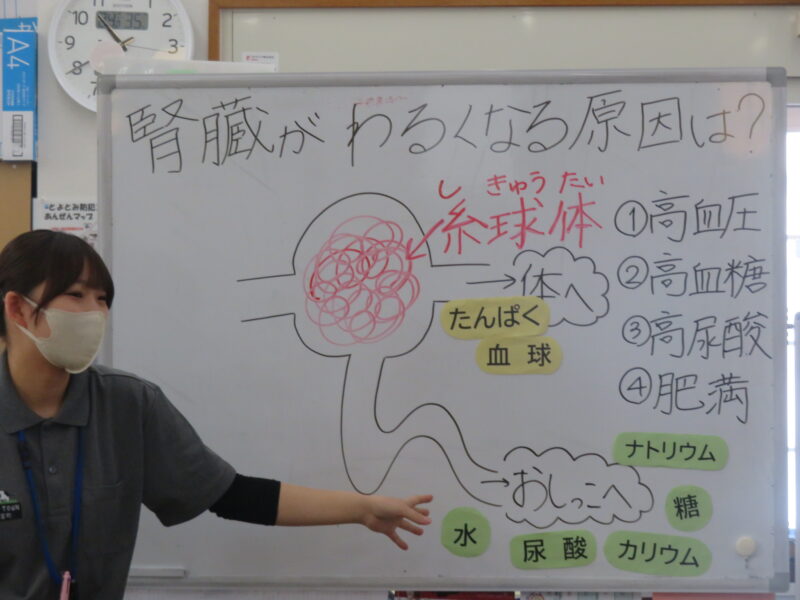 10
2
9
3
8
A4
腎臓が わるくなる原因は?
とよとみ防災
あんぜんマップ
し きゅう たい
糸球体
①高血圧
→体へ
②高血糖
たんぱく
血球
③高尿酸
④肥満
ナトリウム
→おしっこへ
糖
水
尿酸
カリウム